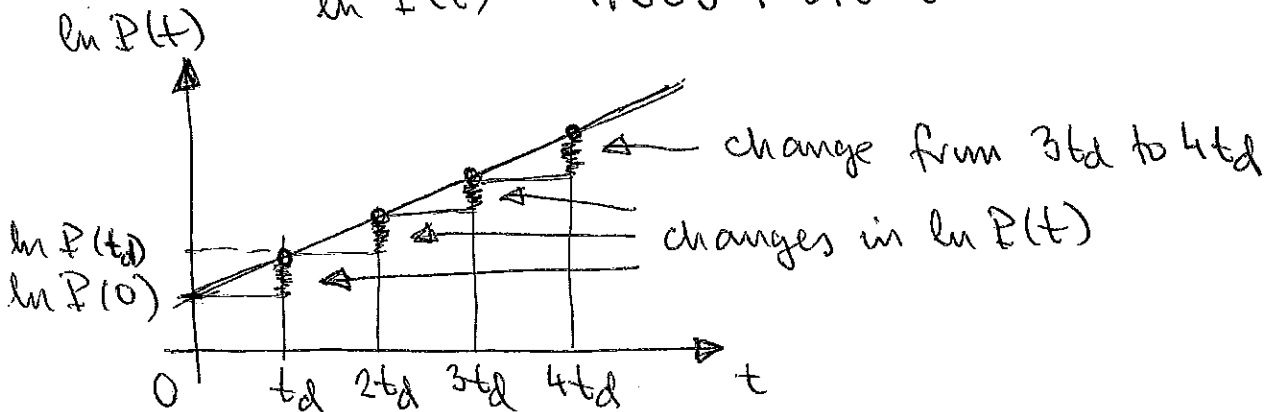 ln P(t)
ln P(t)
change from 3td to 4td
changes in ln P(t)
ln P(td)
ln P(0)
0 td 2td 3td 4td t